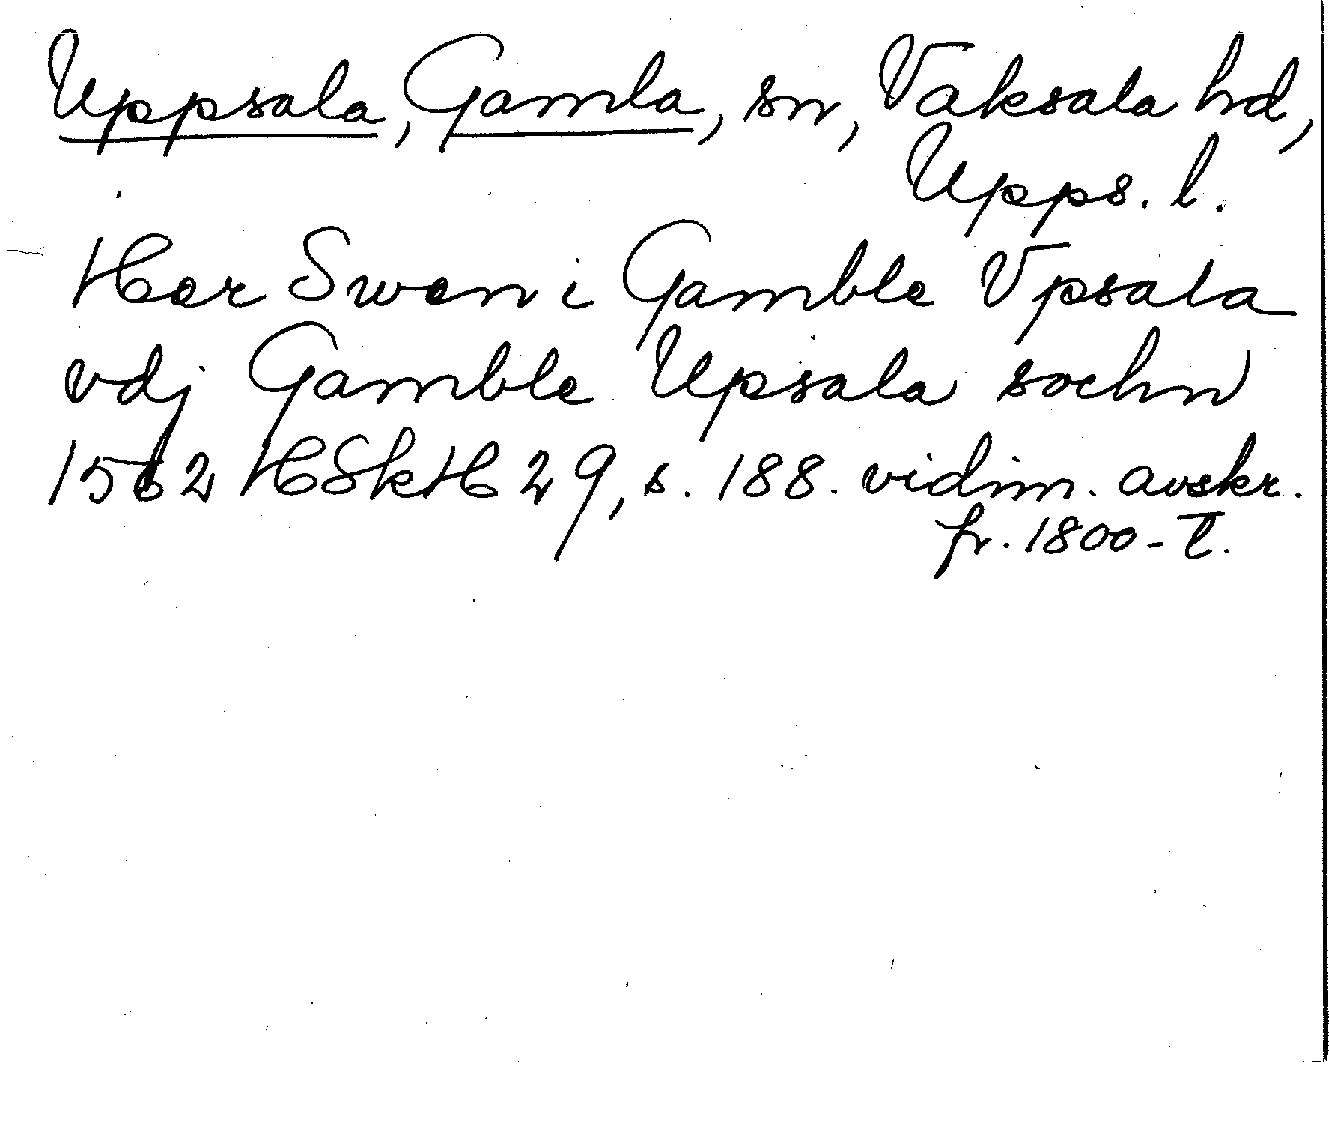 Uppsala, Gamla, sn, Vaksala hd,
Upps. l.
Her Swen i Gamble Vpsala
vdj Gamble Upsala sochn
1562 HSkH 29, s. 188. vidim. avskr.
fr. 1800-t.